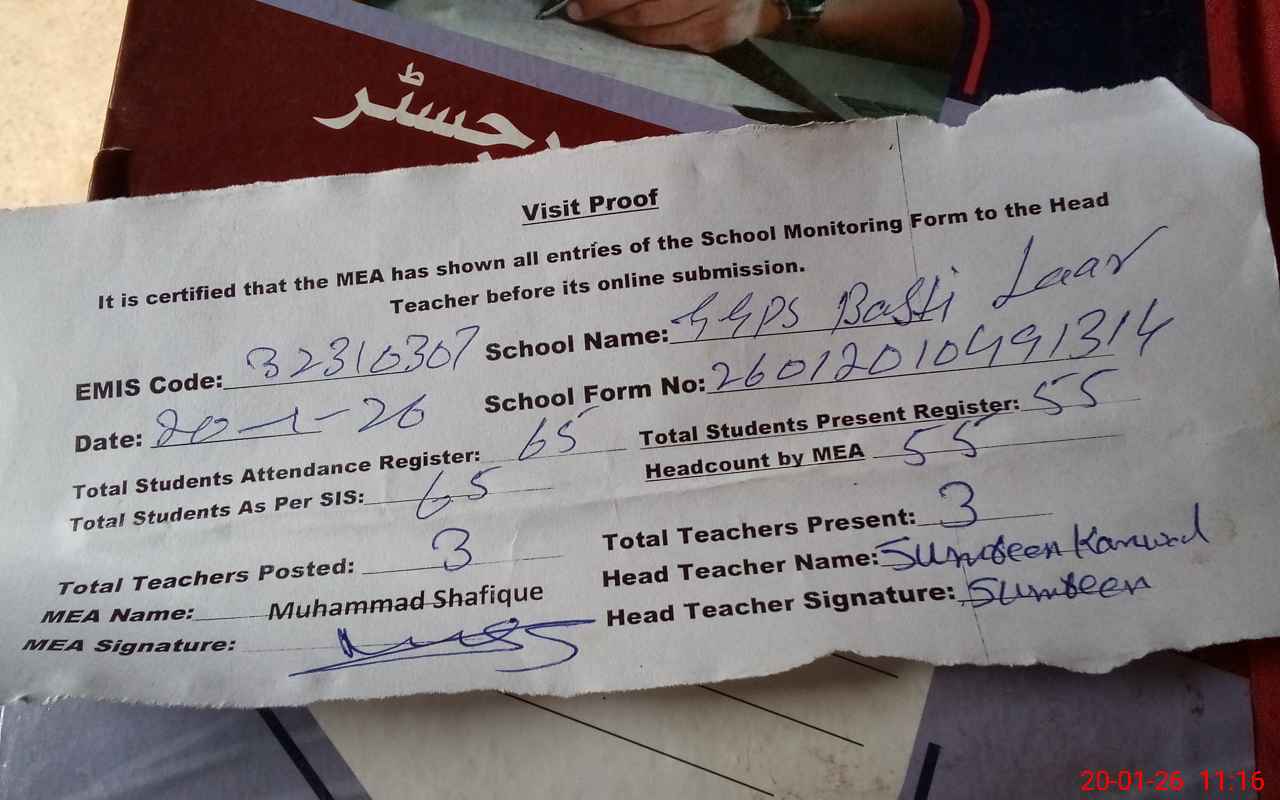 رجسٹر
Visit Proof
It is certified that the MEA has shown all entries of the School Monitoring Form to the Head
Teacher before its online submission.
EMIS Code: 32310307 School Name: GGPS Basti Laar
Date: 20-1-26 School Form No: 260120104991314
Total Students Attendance Register: 65 Total Students Present Register: 55
Total Students As Per SIS: 65 Headcount by MEA 55
Total Teachers Posted: 3 Total Teachers Present: 3
MEA Name: Muhammad Shafique Head Teacher Name: Sumreen Kanwal
MEA Signature: Head Teacher Signature: Sumreen
20-01-26 11:16